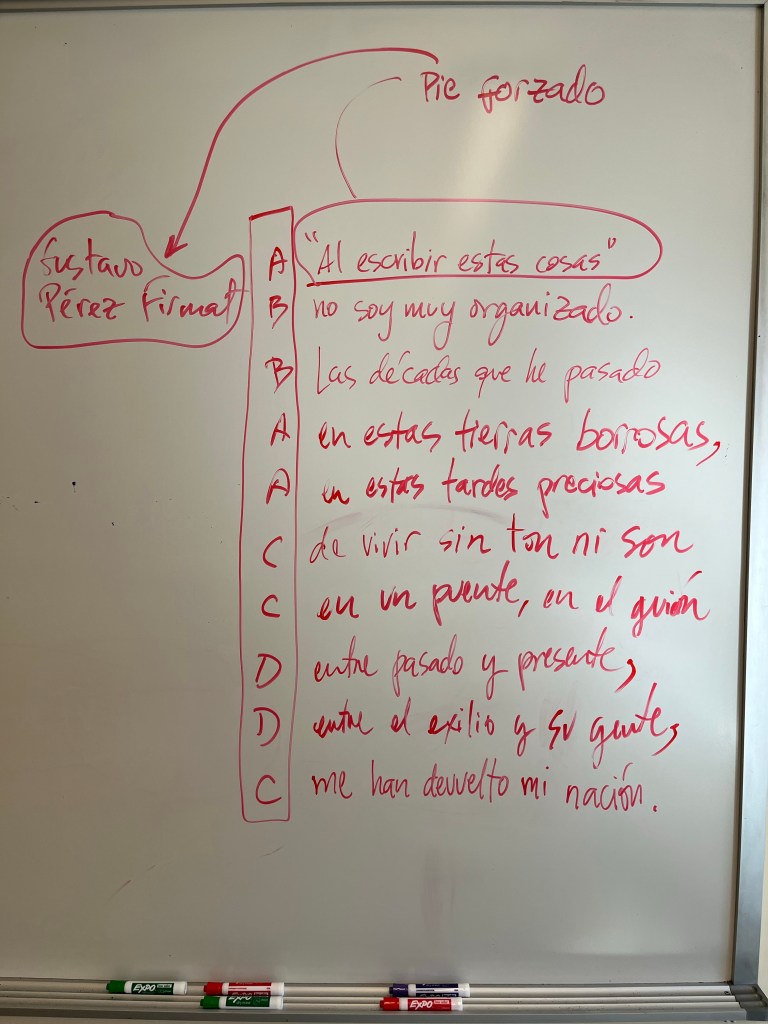 Pie forzado
Gustavo
Pérez Firmat
A "Al escribir estas cosas"
B no soy muy organizado.
B Las décadas que he pasado
A en estas tierras borrosas,
A en estas tardes preciosas
C de vivir sin ton ni son
C en un puente, en el guión
D entre pasado y presente,
D entre el exilio y su gente,
C me han devuelto mi nación.
EXPO
EXPO
EXPO